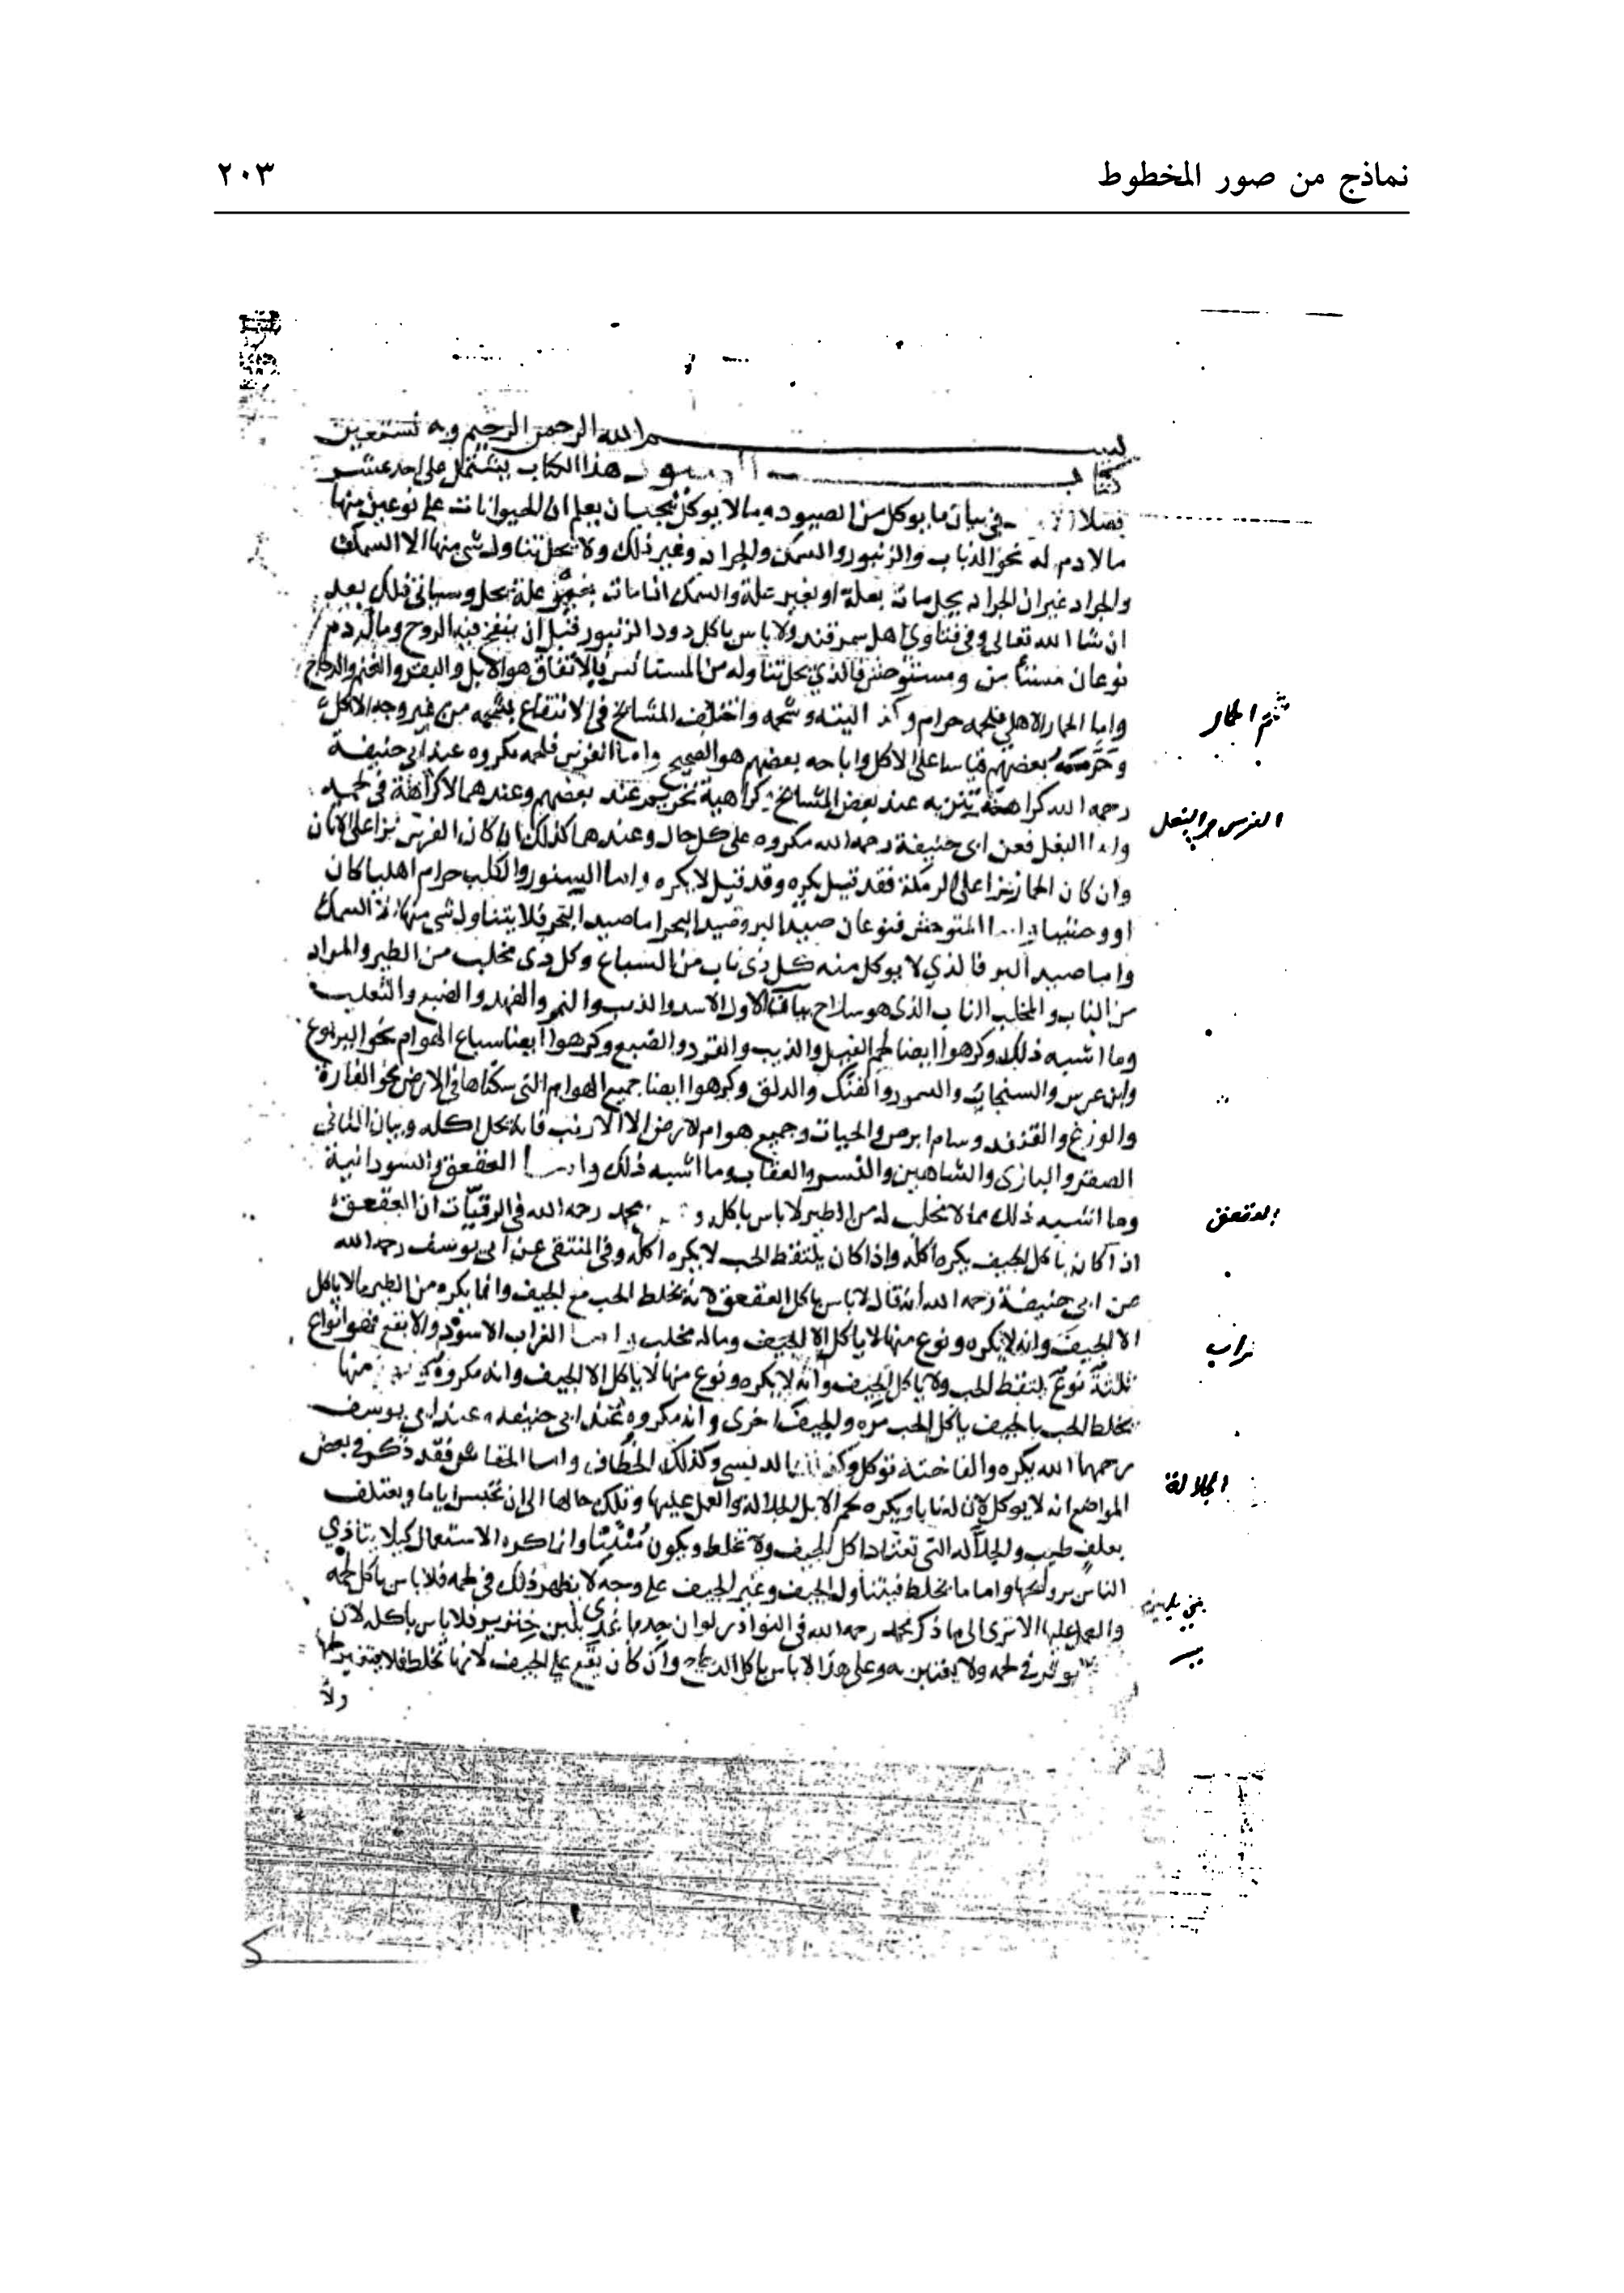 نماذج من صور المخطوط
٢٠٣
بسم الله الرحمن الرحيم وبه نستعين
كتاب هذا الكتاب يشتمل على احد عشر
فصلا في بيان ما يوكل من الصيود وما لا يوكل يجب ان يعلم ان الحيوانات على نوعين منها
ما لا دم له نحو الذباب والزنبور والسمك والجراد وغير ذلك ولا يحل تناول شي منها الا السمك
والجراد غير ان الجراد يحل مات بعلة او بغير علة والسمك اذا مات بغير علة يحل وسياتي ذلك بعد
ان شا الله تعالى وفي فتاوى اهل سمرقند ولا باس باكل دود الزنبور قبل ان ينفخ فيه الروح وماله دم
نوعان مستأنس ومستوحش فالذي يحل تناوله من المستانس بالاتفاق هو الابل والبقر والغنم والدجاج
واما الحمار الاهلي فلحمه حرام وكذا لبنه وشحمه واختلف المشايخ في الانتفاع بشحمه من غير وجه الاكل
وحرمه بعضهم قياسا على الاكل واباحه بعضهم هو الصحيح واما الفرس فلحمه مكروه عند ابي حنيفة
رحمه الله كراهة تنزيه عند بعض المشايخ كراهية تحريم عند بعضهم وعندهما لا كراهة في لحمه
واما البغل فعن ابي حنيفة رحمه الله مكروه على كل حال وعندهما كذلك ان كان الفرس نزا على الاتان
وان كان الحمار نزا على الرمكة فقد قيل يكره وقد قيل لا يكره واما السنور والكلب حرام اهليا كان
او وحشيا واما المتوحش فنوعان صيد البر وصيد البحر اما صيد البحر فلا يتناول شي منها السمك
واما صيد البر فالذي لا يوكل منه كل ذي ناب من السباع وكل ذي مخلب من الطير والمراد
من الناب والمخلب الناب الذي هو سلاح الاول الاسد والذيب والنمر والفهد والضبع والثعلب
وما اشبه ذلك وكرهوا ايضا لحم الفيل والذيب والقرد والضبع وكرهوا ايضا سباع الهوام نحو اليربوع
وابن عرس والسنجاب والسمور والفنك والدلق وكرهوا ايضا جميع الهوام التي سكناها في الارض نحو الفارة
والوزغ والقنفد وسام ابرص والحيات وجميع هوام الارض الا الارنب فانه يحل اكله وبيان الثاني
الصقر والبازي والشاهين والنسر والعقاب وما اشبه ذلك واما العقعق والسودانية
وما اشبه ذلك مما لا مخلب له من الطير لا باس باكله محمد رحمه الله في الرقيات ان العقعق
اذا كان ياكل الجيف يكره اكله واذا كان يلتقط الحب لا يكره اكله وفي المنتقى عن ابي يوسف رحمه الله
عن ابي حنيفة رحمه الله انه قال لا باس باكل العقعق لانه يخلط الحب مع الجيف وانما يكره من الطير ما لا ياكل
الا الجيف وانه لا يكره ونوع منها لا ياكل الا الجيف وماله مخلب واما الغراب الاسود والابقع فهو انواع
ثلثة نوع يلتقط الحب ولا ياكل الجيف وانه لا يكره ونوع منها لا ياكل الا الجيف وانه مكروه منها
يخلط الحب بالجيف ياكل الحب مره والجيف اخرى وانه مكروه عند ابي حنيفه وعند ابي يوسف
رحمهما الله يكره والفاختة توكل وكذا الدبسي وكذلك الخطاف واما الخفاش فقد ذكر في بعض
المواضع انه لا يوكل لان له نابا ويكره لحم الابل الجلالة والعمل عليها وتلك حالها الى ان تحبس اياما ويعتلف
بعلف طيب والجلاله التي تعتاد اكل الجيف ولا تخلط ويكون منتنا وانما كره الاستعمال كيلا يتاذي
الناس بروائحها واما ما يخلط فيتناول الجيف وغير الجيف على وجه لا يظهر ذلك في لحمه فلا باس باكل لحمه
والعمل عليها الا ترى الى ما ذكر محمد رحمه الله في النوادر لو ان جديا غذي بلبن خنزير فلا باس باكله لان
في لحمه ولا يعتبر به وعلى هذا لا باس باكل الدجاج وان كان يقع على الجيف لانها تخلط فلا يتغير لحمها
ولا
الفرس والبغل
العقعق
غراب
الجلالة